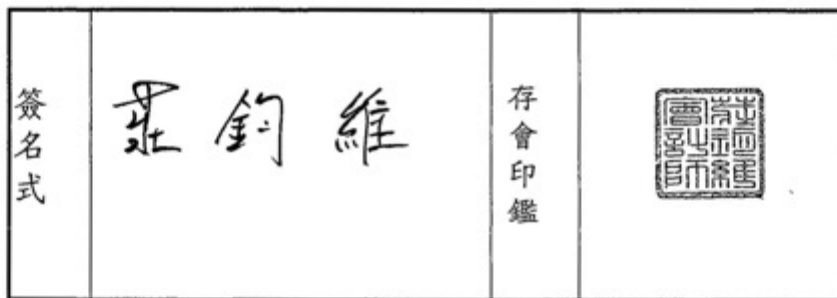 簽名式
莊鈞維
存會印鑑
莊鈞維
會計師